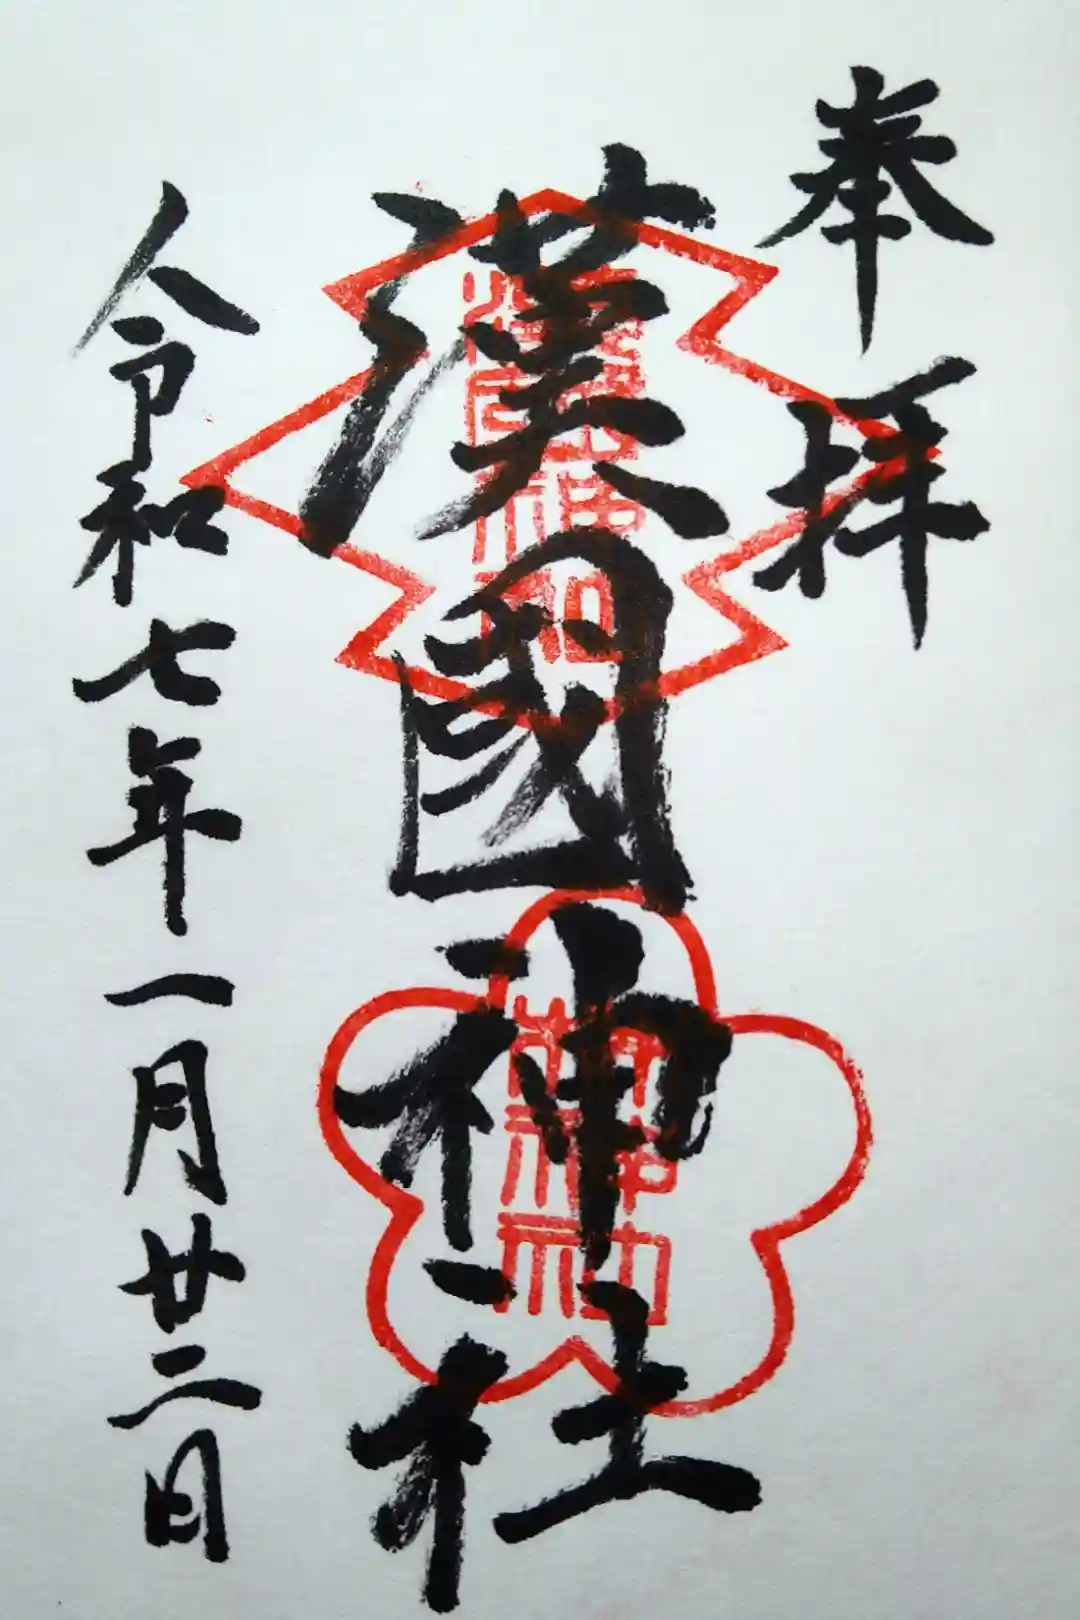 奉拝
漢國神社
令和七年一月廿二日
漢國神社
林神社